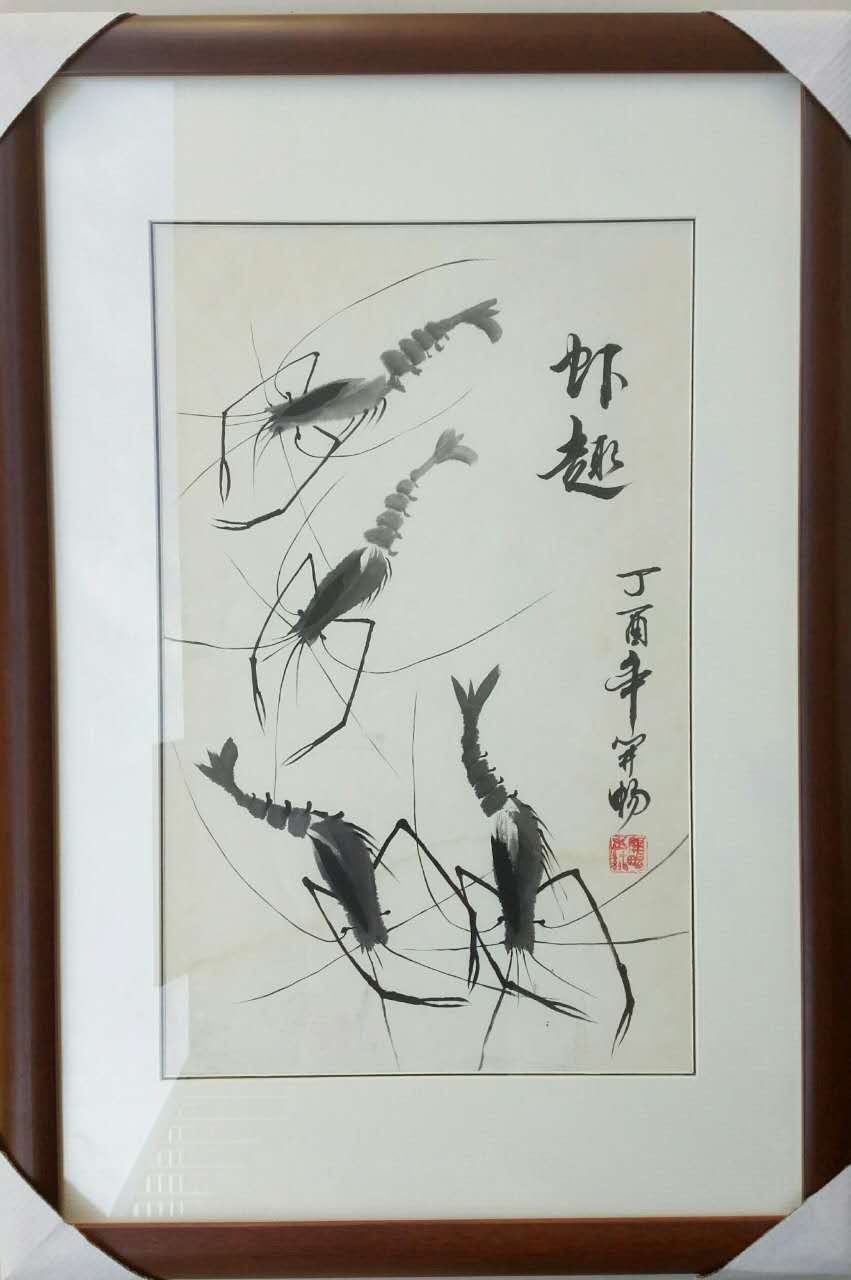 虾趣
丁酉年开畅